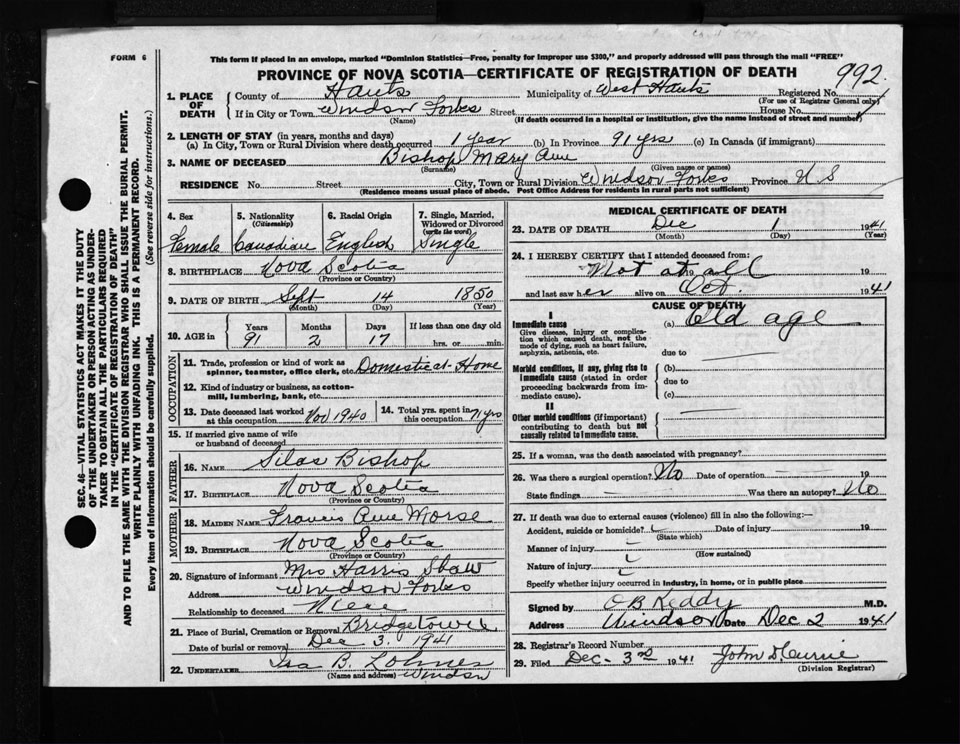 FORM 6
This form if placed in an envelope, marked "Dominion Statistics—Free, penalty for improper use $300," and properly addressed will pass through the mail "FREE"
PROVINCE OF NOVA SCOTIA—CERTIFICATE OF REGISTRATION OF DEATH
992
1. PLACE OF DEATH
County of Hants Municipality of West Hants Registered No.
(For use of Registrar General only)
If in City or Town Windsor Forks Street House No.
(Name) (If death occurred in a hospital or institution, give name instead of street and number)
2. LENGTH OF STAY (in years, months and days)
(a) In City, Town or Rural Division where death occurred 1 year (b) In Province 91 yrs (c) In Canada (if immigrant)
3. NAME OF DECEASED Bishop Mary Ann
(Surname) (Given name or names)
RESIDENCE No. Street City, Town or Rural Division Windsor Forks Province N S
(Residence means usual place of abode. Post Office Address for residents in rural parts not sufficient)
4. Sex Female
5. Nationality (Citizenship) Canadian
6. Racial Origin English
7. Single, Married, Widowed or Divorced (write the word) Single
8. BIRTHPLACE Nova Scotia
(Province or Country)
9. DATE OF BIRTH Sept 14 1850
(Month) (Day) (Year)
10. AGE in Years Months Days If less than one day old
91 2 17 hrs. or min.
OCCUPATION
11. Trade, profession or kind of work as spinner, teamster, office clerk, etc. Domestic at Home
12. Kind of industry or business, as cotton-mill, lumbering, bank, etc.
13. Date deceased last worked at this occupation Nov 1940
14. Total yrs. spent in this occupation 71 yrs
15. If married give name of wife or husband of deceased
FATHER
16. NAME Silas Bishop
17. BIRTHPLACE Nova Scotia
(Province or Country)
MOTHER
18. MAIDEN NAME Francis Ann Morse
19. BIRTHPLACE Nova Scotia
(Province or Country)
20. Signature of informant Mrs Harris Shaw
Address Windsor Forks
Relationship to deceased Niece
21. Place of Burial, Cremation or Removal Bridgetown
Date of burial or removal Dec 3. 1941
22. UNDERTAKER Ira B. Lohnes
(Name and address) Windsor
MEDICAL CERTIFICATE OF DEATH
23. DATE OF DEATH Dec 1 1941
(Month) (Day) (Year)
24. I HEREBY CERTIFY that I attended deceased from:
Not at all 19 19
and last saw her alive on Oct. 1941
CAUSE OF DEATH
I
Immediate cause (a) Old age
Give disease, injury or complication which caused death, not the mode of dying, such as heart failure, asphyxia, asthenia, etc.
due to
Morbid conditions, if any, giving rise to immediate cause (stated in order proceeding backwards from immediate cause).
(b)
due to
(c)
II
Other morbid conditions (if important) contributing to death but not causally related to immediate cause.
25. If a woman, was the death associated with pregnancy?
26. Was there a surgical operation? No Date of operation 19
State findings Was there an autopsy? No
27. If death was due to external causes (violence) fill in also the following:—
Accident, suicide or homicide? Date of injury 19
(State which)
Manner of injury
(How sustained)
Nature of injury
Specify whether injury occurred in industry, in home, or in public place
Signed by O B Keddy M.D.
Address Windsor Date Dec 2 1941
28. Registrar's Record Number
29. Filed Dec. 3rd 1941 John D. Currie
(Division Registrar)
SEC. 46—VITAL STATISTICS ACT MAKES IT THE DUTY
OF THE UNDERTAKER OR PERSON ACTING AS UNDER-
TAKER TO OBTAIN ALL THE PARTICULARS REQUIRED
IN THE "CERTIFICATE OF REGISTRATION OF DEATH"
AND TO FILE THE SAME WITH THE DIVISION REGISTRAR WHO SHALL ISSUE THE BURIAL PERMIT.
WRITE PLAINLY WITH UNFADING INK. THIS IS A PERMANENT RECORD.
Every item of information should be carefully supplied. (See reverse side for instructions.)